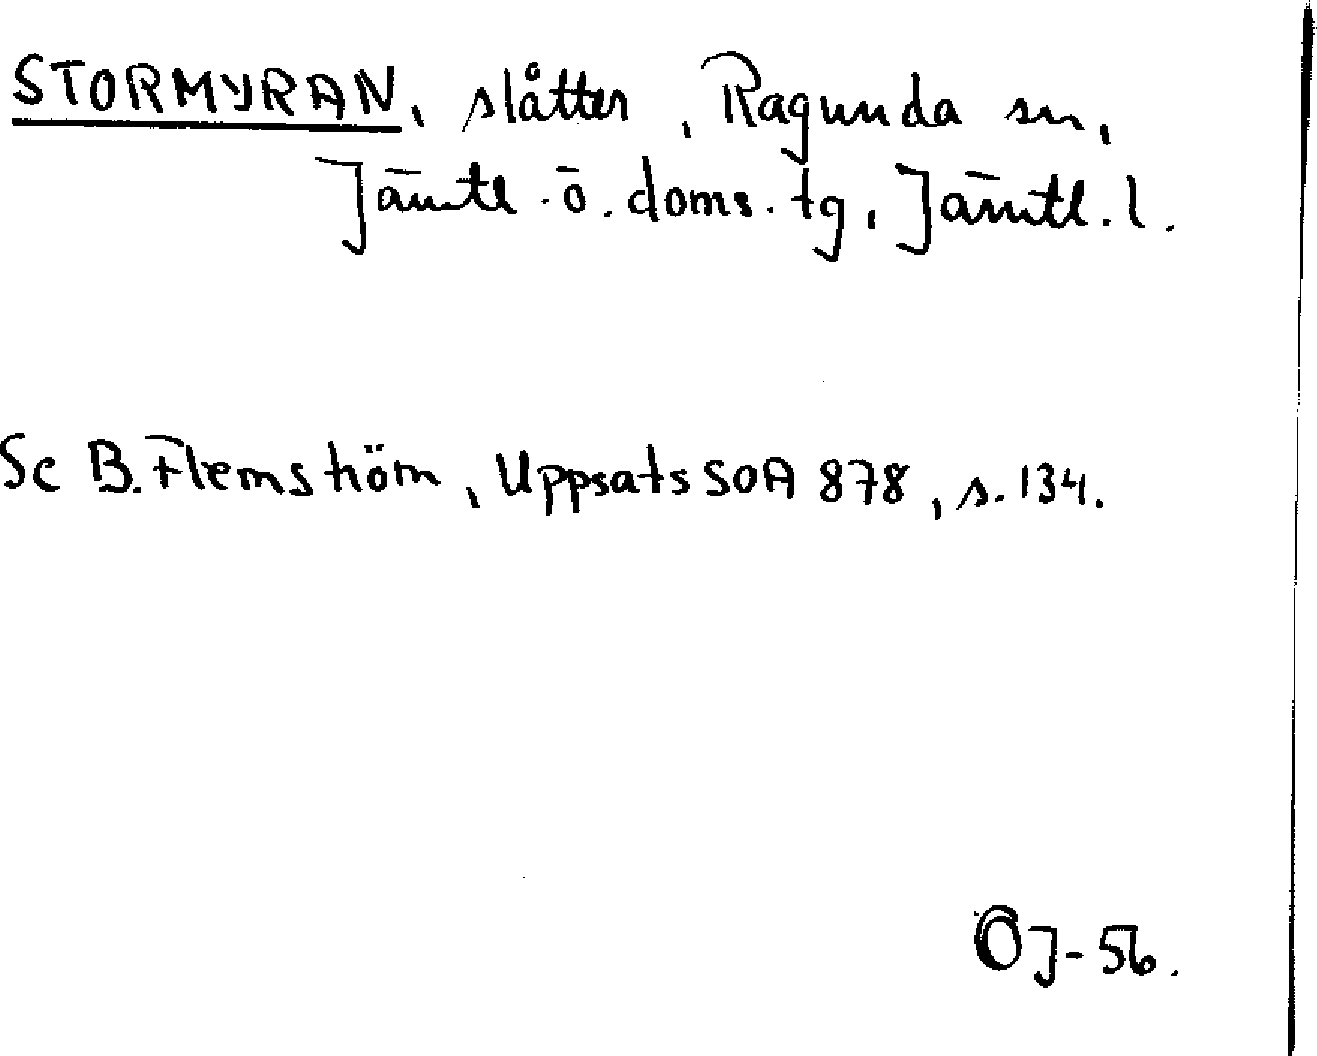 STORMYRAN, slåtter, Ragunda sn,
Jämtl. ö. doms. tg, Jämtl. l.
Sc B. Flemström, Uppsats SOA 878, s. 134.
ÖJ-56.